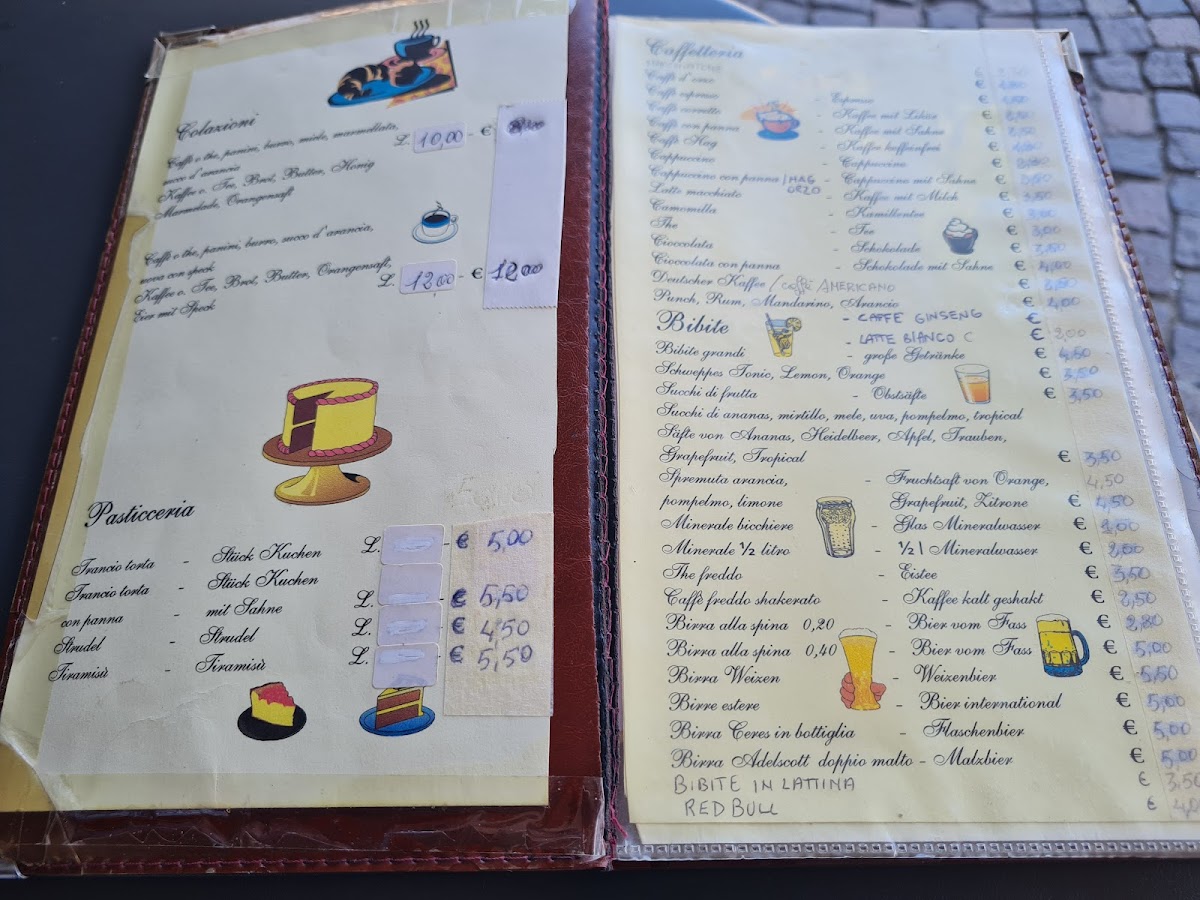 Colazioni
Caffè o the, panini, burro, miele, marmellata, L. 10,00 - €
succo d'arancia
Kaffee o. Tee, Brot, Butter, Honig
Marmelade, Orangensaft
Caffè o the, panini, burro, succo d'arancia,
uova con speck
Kaffee o. Tee, Brot, Butter, Orangensaft, L. 12,00 - € 12,00
Eier mit Speck
Pasticceria
Trancio torta - Stück Kuchen L. - € 5,00
Trancio torta - Stück Kuchen
con panna mit Sahne L. € 5,50
Strudel - Strudel L. € 4,50
Tiramisù - Tiramisù L. € 5,50
Caffetteria
Caffè d'orzo €
Caffè espresso - Espresso €
Caffè corretto - Kaffee mit Likör €
Caffè con panna - Kaffee mit Sahne €
Caffè Hag - Kaffee koffeinfrei €
Cappuccino - Cappuccino €
Cappuccino con panna / HAG ORZO - Cappuccino mit Sahne €
Latte macchiato - Kaffee mit Milch € 3,50
Camomilla - Kamillentee € 3,00
The - Tee € 3,00
Cioccolata - Schokolade € 3,50
Cioccolata con panna - Schokolade mit Sahne € 4,00
Deutscher Kaffee / caffè AMERICANO €
Punch, Rum, Mandarino, Arancio € 4,00
- CAFFE GINSENG €
Bibite - LATTE BIANCO C € 2,00
Bibite grandi - große Getränke € 4,50
Schweppes Tonic, Lemon, Orange € 3,50
Succhi di frutta - Obstsäfte € 3,50
Succhi di ananas, mirtillo, mele, uva, pompelmo, tropical
Säfte von Ananas, Heidelbeer, Apfel, Trauben,
Grapefruit, Tropical € 3,50
Spremuta arancia, - Fruchtsaft von Orange, 4,50
pompelmo, limone Grapefruit, Zitrone € 4,50
Minerale bicchiere - Glas Mineralwasser €
Minerale ½ litro - ½ l Mineralwasser €
The freddo - Eistee € 3,50
Caffè freddo shakerato - Kaffee kalt geshakt €
Birra alla spina 0,20 - Bier vom Fass €
Birra alla spina 0,40 - Bier vom Fass € 5,00
Birra Weizen - Weizenbier € 5,50
Birre estere - Bier international € 5,00
Birra Ceres in bottiglia - Flaschenbier € 5,00
Birra Adelscott doppio malto - Malzbier € 5,00
BIBITE IN LATTINA € 3,50
RED BULL €